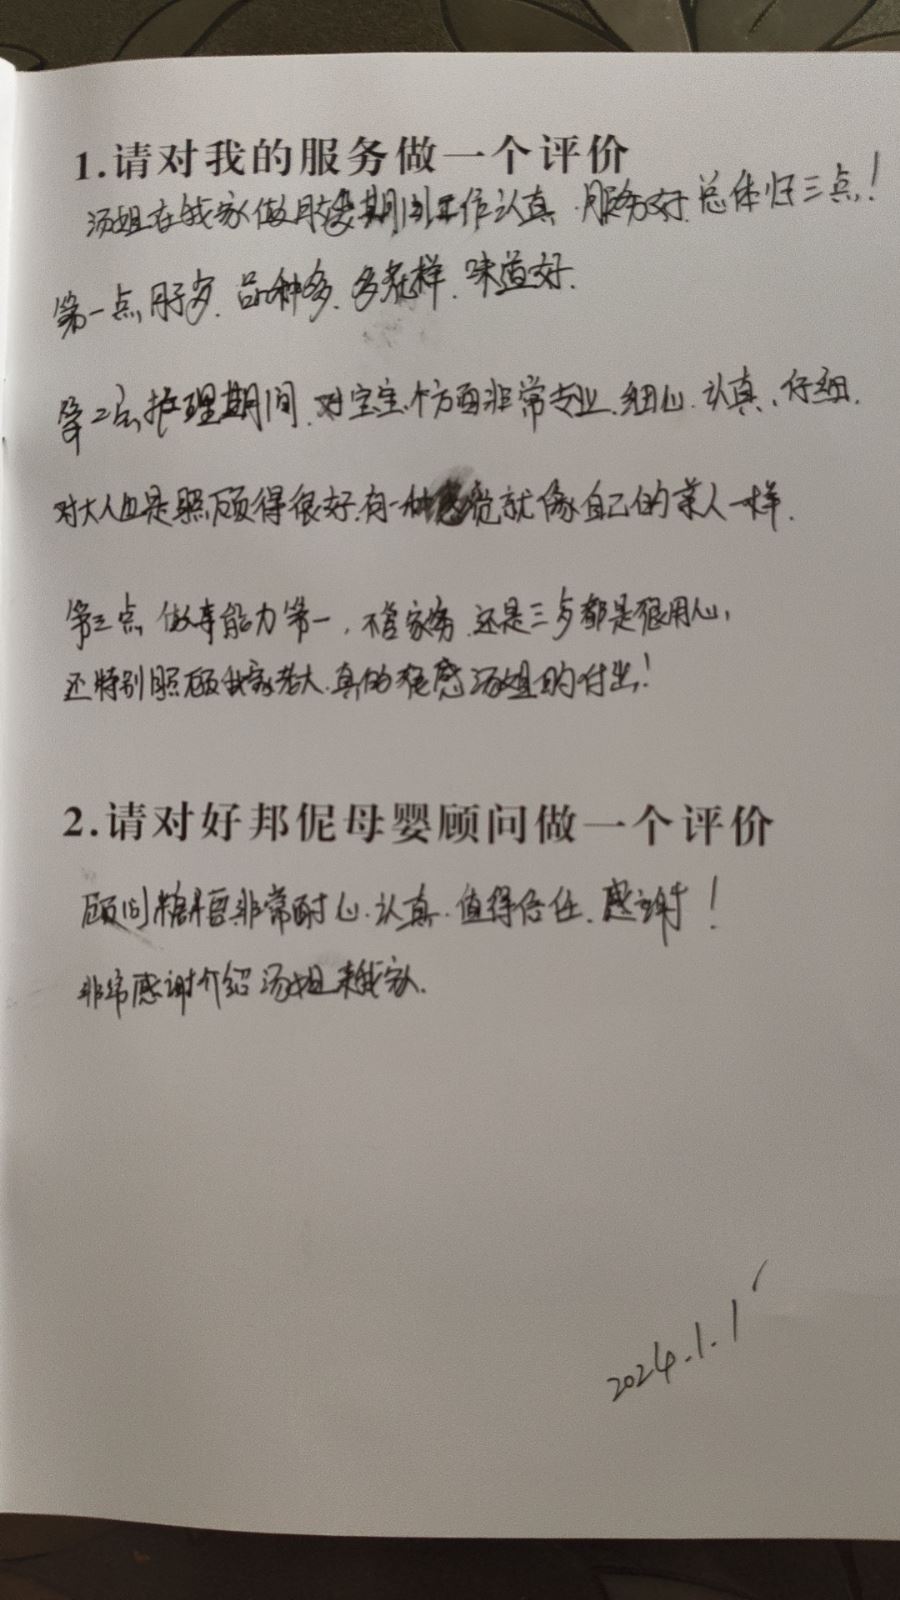 1.请对我的服务做一个评价
汤姐在我家做月嫂期间工作认真.服务好.总体归三点!
第一点,月子歺.品种多.多花样.味道好.
第二点,护理期间.对宝宝个方面非常专业.细心.认真.仔细.
对大人也是照顾得很好.有一种感觉就像自己的家人一样.
第三点,做事能力第一.不管家务.还是三歺都是很用心,
还特别照顾我家老大.真的很感汤姐的付出!
2.请对好邦伲母婴顾问做一个评价
顾问 非常耐心.认真.值得信任.感谢!
非常感谢介绍汤姐来我家.
2024.1.1